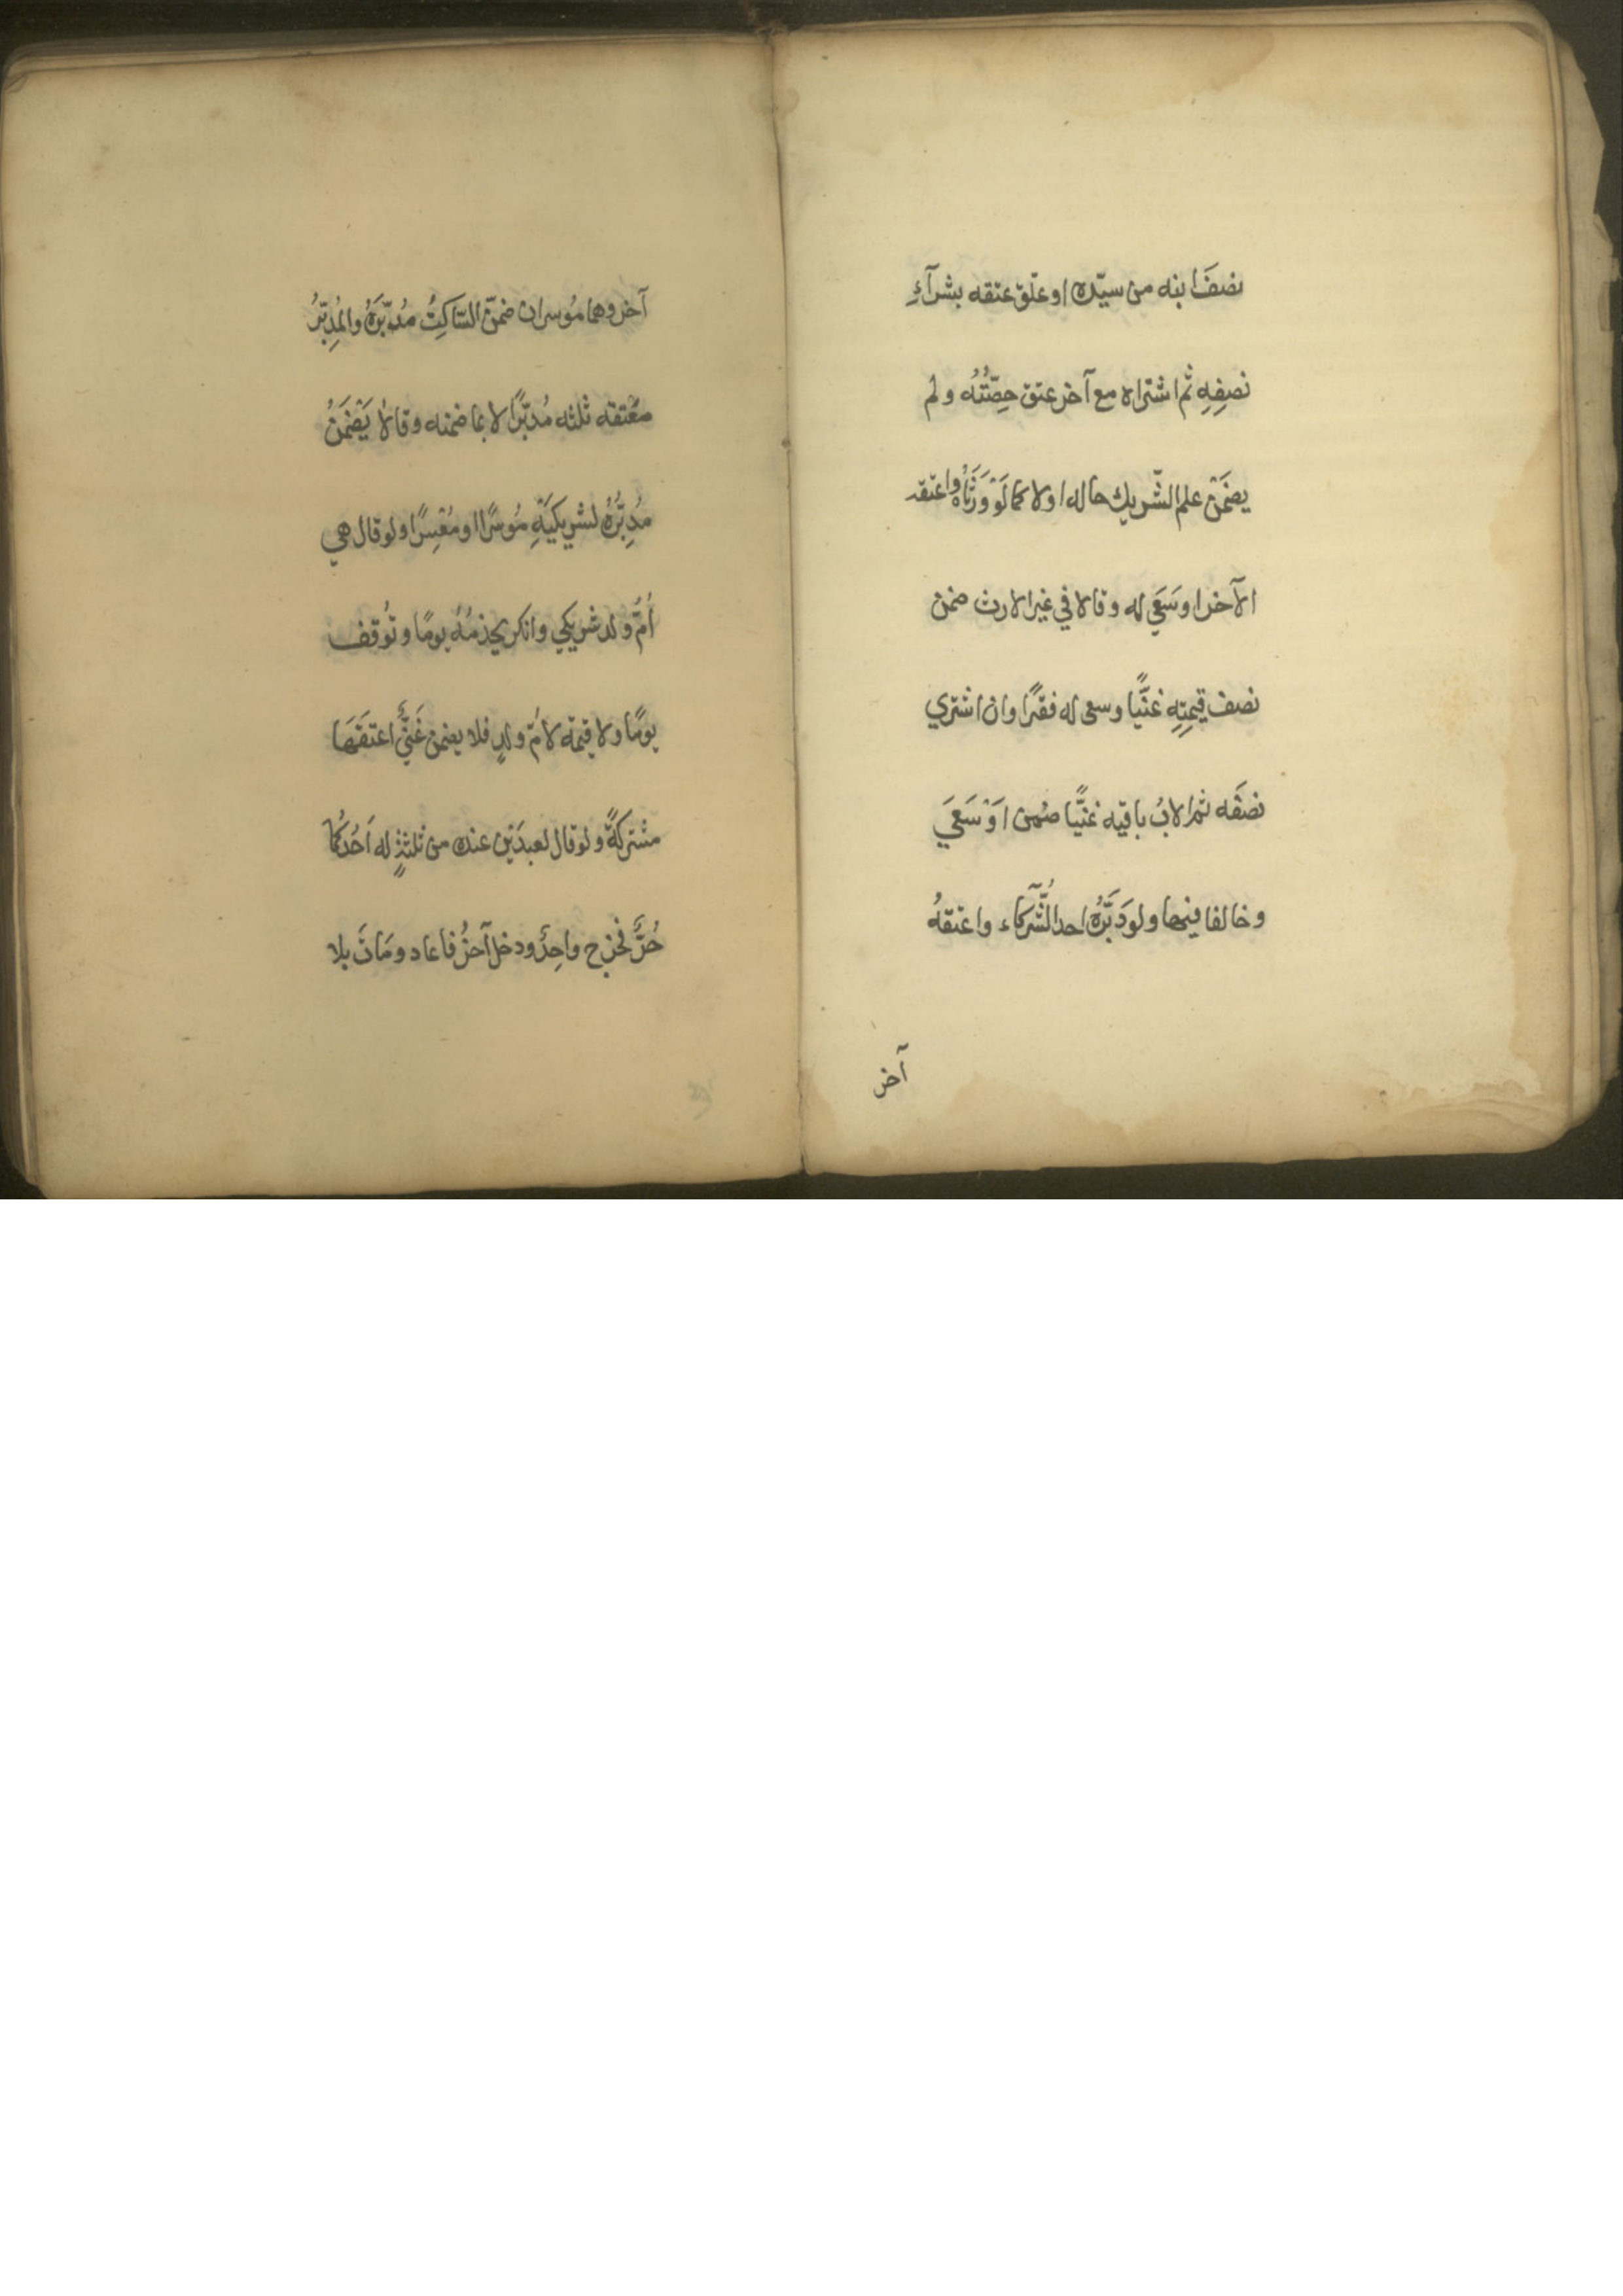 نصفَ ابنه من سيّده او علّق عتقه بشرآءِ
نصفِهِ ثم اشتراه مع آخر عتق حِصّتُهُ ولم
يضمَنْ علم الشّريك حاله او لا كما لَوْ وَرَثَاهُ واعتقه
الآخر او سَعَي له وقالا في غير الارث ضمن
نصف قيمتِهِ غنيًّا وسعى له فقيرًا وان اشتري
نصفَه ثم الابُ باقيه غنيًّا ضمن اوْ سَعَيَ
وخالفا فيها ولو دَبَّرَهُ احد الشُّرَكآء واعتقهُ
آخر
آخر وهما مُوسران ضمنَ السّاكِتُ مُدبّرَهُ والمُدبِّرُ
معتقه ثلثه مُدبّرًا لا بما ضمنه وقالا يَضْمَنُ
مُدبِّرُهُ لشريكَيْهِ مُوسرًا او مُعْسِرًا ولو قال هي
اُمُّ ولد شريكي وانكر يخدمُهُ يومًا وتُوقف
يومًا ولا قيمة لامّ ولدٍ فلا يضمن غَنيٌّ اعتقَهَا
مشتركةً ولو قال لعبدَيْن عنده من ثلثةٍ له اَحَدُكُما
حُرٌّ فخرج واحِدٌ ودخل آخرُ فاعاد ومَاتَ بلا